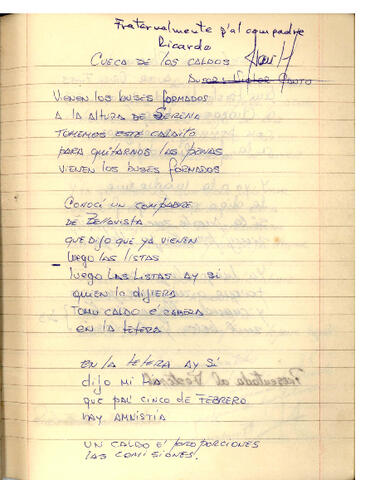 Fraternalmente p'al compadre
Ricardo
CUECA DE LOS CALDOS
AUTOR: VICTOR CANTO
VIENEN LOS BUSES FORMADOS
A LA ALTURA DE SERENA
TOMEMOS ESTE CALDITO
PARA QUITARNOS LAS PENAS
VIENEN LOS BUSES FORMADOS
CONOCÍ UN COMPADRE
DE BELLAVISTA
QUE DIJO QUE YA VIENEN
LUEGO LAS LISTAS
LUEGO LAS LISTAS AY SÍ
QUIEN LO DIJIERA
TOMO CALDO E CABEZA
EN LA TETERA
EN LA TETERA AY SÍ
DIJO MI TÍA
QUE PAL' CINCO DE FEBRERO
HAY AMNISTÍA
UN CALDO E' PROPORCIONES
LAS COMISIONES.